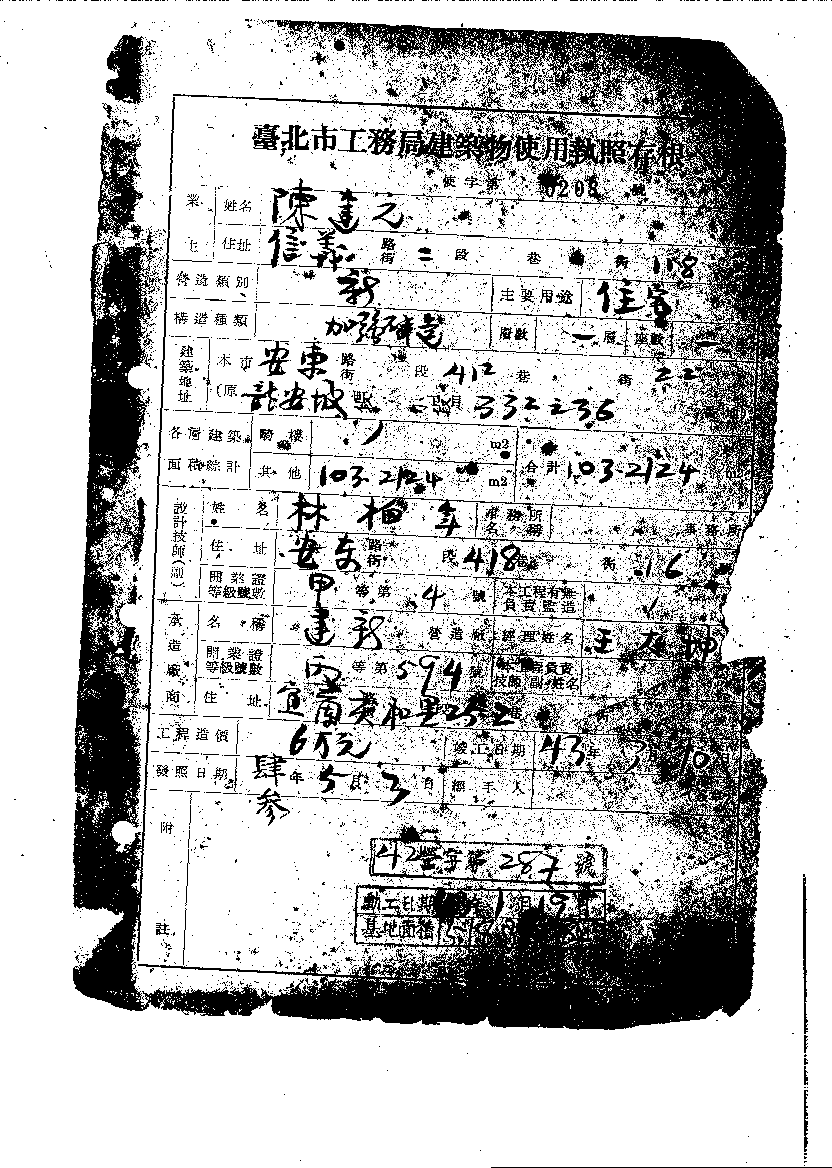 臺北市工務局建築物使用執照存根
使字第 0205 號
業主 姓名 陳達元
住址 信義 路街 二 段 巷 街 118
營造類別 新 主要用途 住宅
構造種類 加強磚造 層數 一 層 座數
建築地址 本市 安東 路街 段 412 巷 街 22
(原 龍安坡 段 332 236
各層建築面積綜計 騎樓 m2
其他 103.2124 m2 合計 103.2124
設計技師(副) 姓名 林柏年 事務所名稱 事務所
住址 安东 路街 段 418 街 16
開業證等級號數 甲 等第 4 號 本工程有無負責監造
承造廠商 名稱 建新 營造廠 經理姓名 王 坤
開業證等級號數 丙 等第 594 號 負責技師(副)姓名
住址 宜蘭
工程造價 6万元 竣工日期 43年 月 10
發照日期 肆参 年 5 月 3 日 經手人
附註
42營字第 287 號
動工日期 年 1 月 19
基地面積